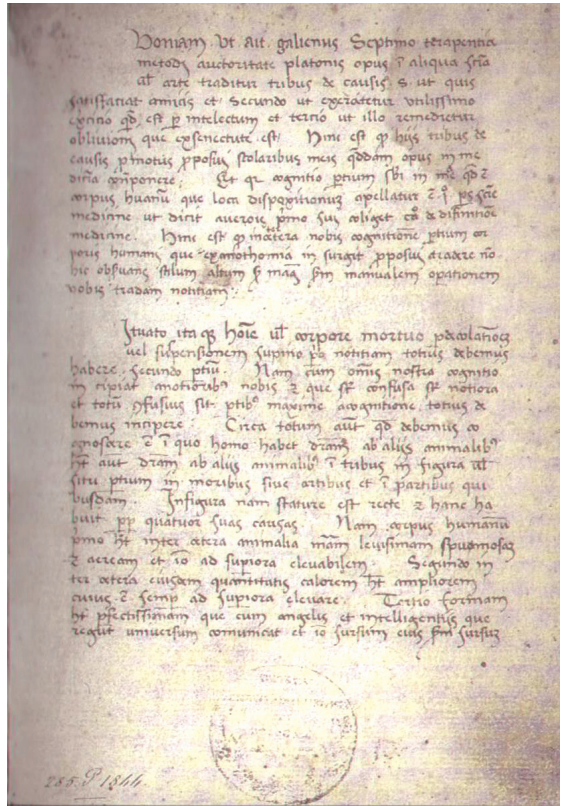 Uoniam. Vt ait. galienus Septimo terapentia
metodi auctoritate platonis opus ī aliqua sciā
ul arte traditur tribus de causis. s. ut quis
satisfaciat amicis et Secundo ut exerceatur utilissimo
exercicio qd est p intelectum et tercio ut illo remedietur
oblivioni que exsenectute est. Hinc est q hiis tribus de
causis pmotus pposui scolaribus meis qddam opus in me
dicīa cōponere. Et qr cognitio ptium sbi in me qd ē
corpus huanū que loca dispoxitionuz apellatur ē
medicine ut dicit averois pmo sui coliget de difinitiōe
medicine. Hinc est q in cetera nobis cognitionē ptium cor
poris humani que exanothomia in surgit pposui tradere nō
hic obsuans stilum altum s mag sm manualem operationem
vobis tradam notitiam:
Ituato itaq hoīe ul corpore mortuo p decolationez
vel suspensionem supino po notitiam totius debemus
habere. secundo ptiū. Nam cum omīs nostra cognitio
in cipiat anotioribꝰ nobis ⁊ que st confusa st notiora
et totū cfusius sit ptibꝰ maxime acognitione totius de
bemus incipere. Circa totum aut qd debemus co
gnoscere ē ī quo homo habet dram ab aliis animalibꝰ
ht aut dram ab aliis animalibꝰ ī tribus in figura ul
situ ptium in moribus sive artibus et ī partibus qui
busdam. Infigura nam stature est recte ⁊ hanc ha
buit pp quatuor suas causas. Nam corpus humanū
pmo ht inter cetera animalia mām levisimam spuomosaz
⁊ aeream et iō ad supiora elevabilem. Segundo in
ter cetera eiusdem quantitatis calorem ht ampliorem
cuius ē semp ad supiora elevare. Tertio formam
ht pfectissimam que cum angelis et intelligentiis que
regūt universum comunicat et iō sursum eius sm sursuz
285. P 1844